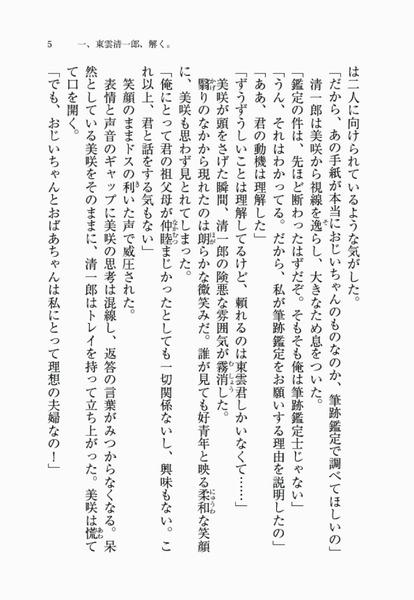 5　一、東雲清一郎、解く。
は二人に向けられているような気がした。
「だから、あの手紙が本当におじいちゃんのものなのか、筆跡鑑定で調べてほしいの」
清一郎は美咲から視線を逸らし、大きなため息をついた。
「鑑定の件は、先ほど断わったはずだぞ。そもそも俺は筆跡鑑定士じゃない」
「うん、それはわかってる。だから、私が筆跡鑑定をお願いする理由を説明したの」
「ああ、君の動機は理解した」
「ずうずうしいことは理解してるけど、頼れるのは東雲君しかいなくて……」
美咲が頭をさげた瞬間、清一郎の険悪な雰囲気が霧消した。
翳りのなかから現れたのは朗らかな微笑みだ。誰が見ても好青年と映る柔和な笑顔
に、美咲も思わず見とれてしまった。
「俺にとって君の祖父母が仲睦まじかったとしても一切関係ないし、興味もない。こ
れ以上、君と話をする気もない」
笑顔のままドスの利いた声で威圧された。
表情と声音のギャップに美咲の思考は混線し、返答の言葉がみつからなくなる。呆
然としている美咲をそのままに、清一郎はトレイを持って立ち上がった。美咲は慌て
て口を開く。
「でも、おじいちゃんとおばあちゃんは私にとって理想の夫婦なの！」